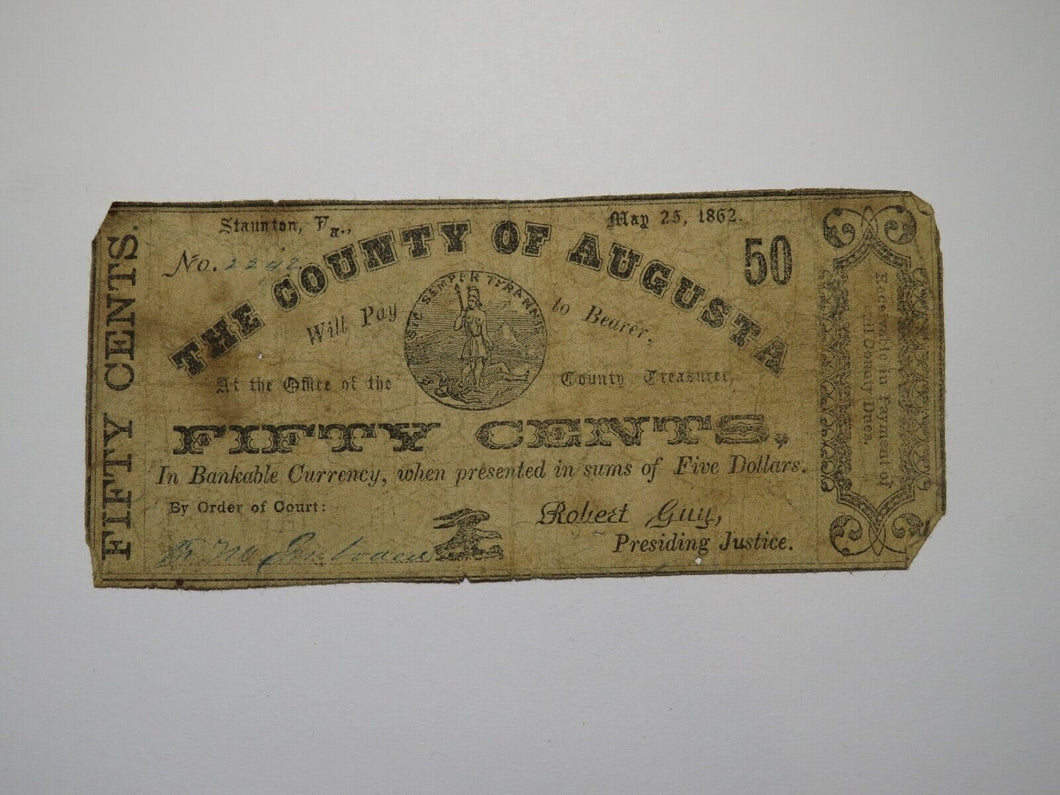 FIFTY CENTS.
Staunton, Va., May 25, 1862.
No.
50
THE COUNTY OF AUGUSTA
SIC SEMPER TYRANNIS
Will Pay to Bearer,
At the Office of the County Treasurer,
FIFTY CENTS,
In Bankable Currency, when presented in sums of Five Dollars.
By Order of Court:
Robert Guy,
Presiding Justice.
Receivable in Payment of
all County Dues.